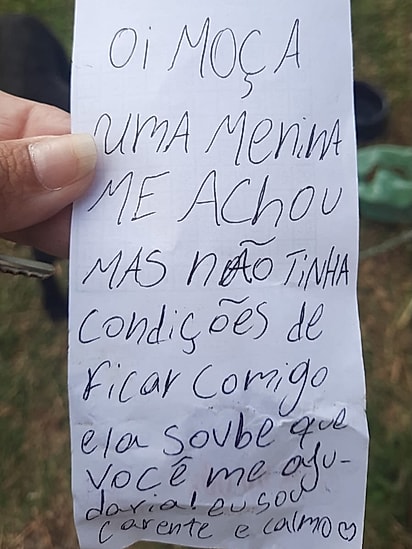 Oi MOÇA
UMA MENINA
ME ACHOU
MAS NÃO TINHA
Condições de
Ficar comigo
ela soube que
você me aju-
daria! eu sou
carente e calmo♡